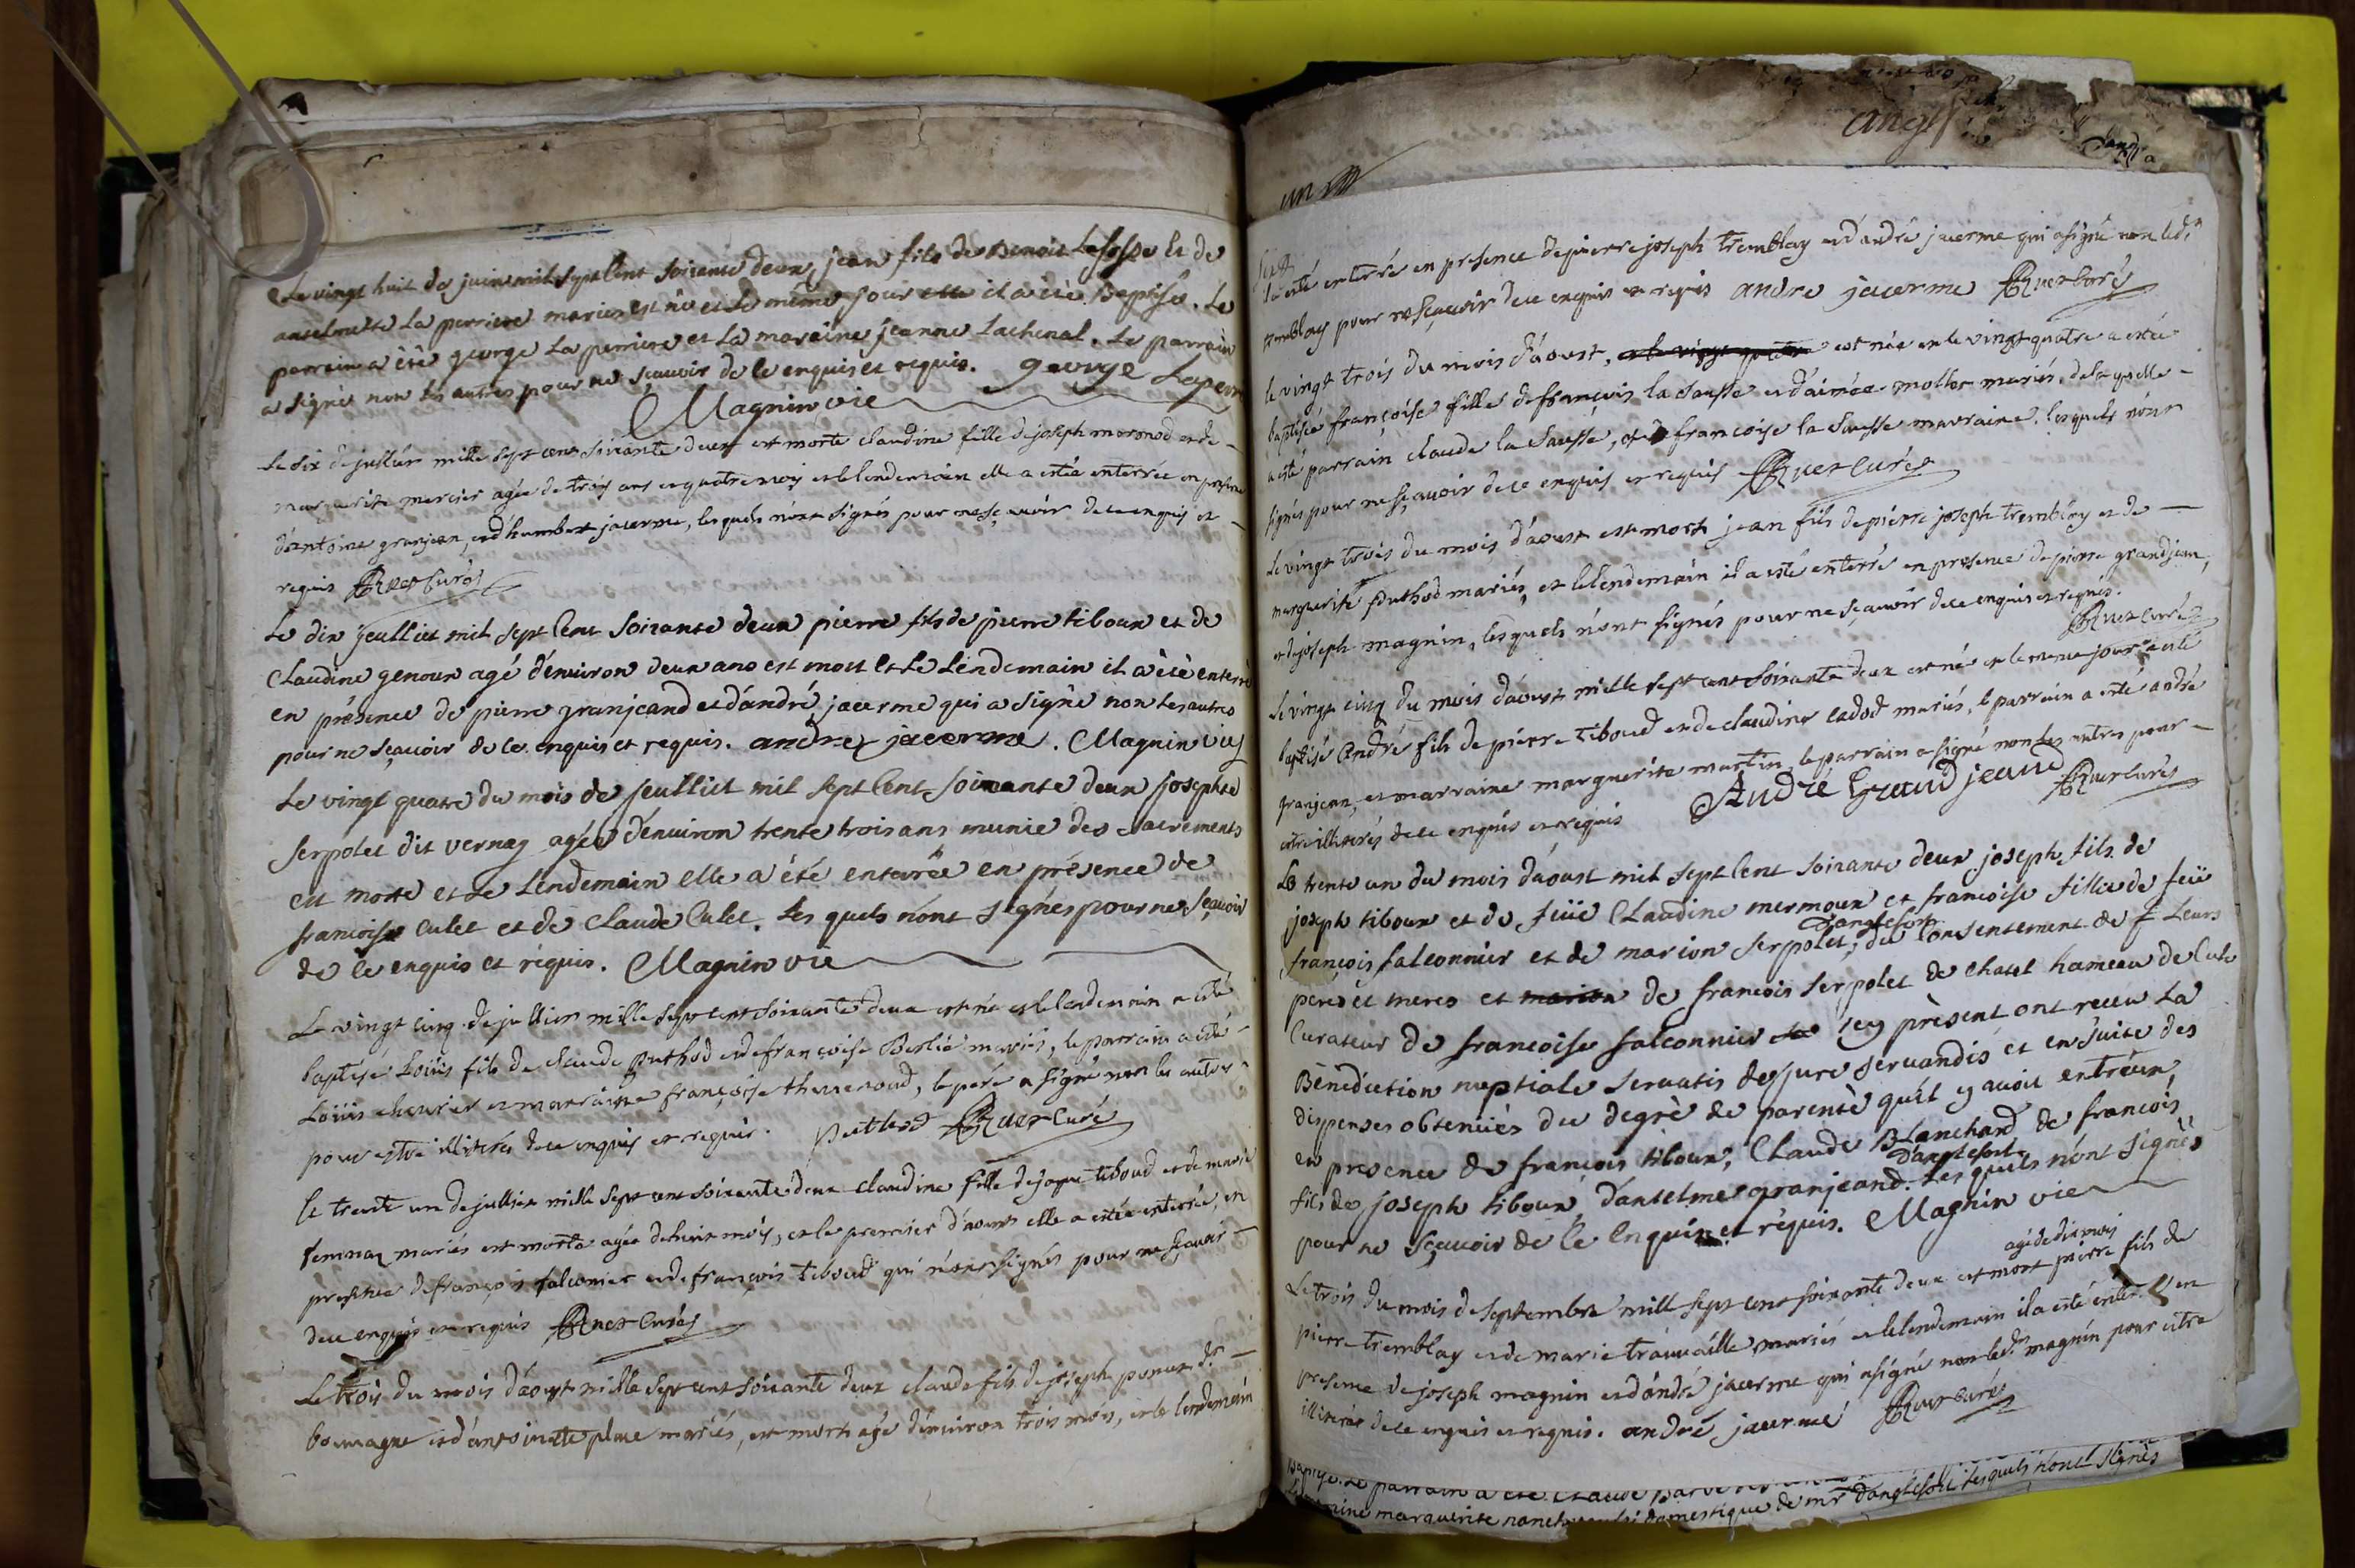 Le vingt huit de juin mil sept Cent soixante deux, jean fils de Benoit Lasosse et de
anselmette La perriere mariés est né et le même jour il a été Baptisé. Le
parrain a été george La perriere et la maraine jeanne Lachenal. Le parrain
a signé non les autres pour ne sçauoir de ce enquis et requis. george Laper
Magnin vie
Le six de jullier mille sept cent soixante deux est morte claudine fille de joseph mormod et de
marguerite mercier agée de trois ans et quatre mois et le lendemain elle a estée enterrée en presence
d'antoine granjean, et d'humbert jacerme, lesquels n'ont signés pour ne sçauoir de ce enquis et
requis Ruet Curé
Le dix jeulliet mil sept Cent soixante deux pierre fils de pierre tiboux et de
Claudine genoux agé d'enuiron deux ans est mort et le Lendemain il a été enterré
en présence de pierre granjeand et d'andré jacerme qui a signé non les autres
pour ne sçauoir de ce enquis et requis. andre jacerme. Magnin vie
Le vingt quatre du mois de jeulliet mil sept Cent soixante deux josephte
serpolet dit vernay agée d'enuiron trente trois ans munie des sacrements
est morte et le Lendemain elle a été enterrée en présence de
francoise Culet et de Claude Culet. Les quels n'ont signés pour ne sçauoir
de ce enquis et réquis. Magnin vie
Le vingt cinq de jullier mille sept cent soixante deux est né et le lendemain a esté
baptisé Loüis fils de claude puthod et de françoise Berlié mariés, le parrain a esté
Loüis cheurier et marraine françoise theuenoud, le pere a signé non les autres
pour estre illiterés de ce enquis et requis. puthod Ruet Curé
le trente un de jullier mille sept cent soixante deux claudine fille de jaque tiboud et de marie
femnaz mariés est morte agée de huit mois, et le premier d'aoust elle a estée enterrée, en
presence de françois falconnier et de françois tiboud qui n'ont signés pour ne sçauoir
de ce enquis et requis Ruet Curé
Le trois du mois d'aoust mille sept cent soixante deux claude fils de joseph
et d'antoinette place mariés, est mort agé d'enuiron trois mois, et le lendemain
angl
a esté enterré en presence de pierre joseph tremblay et d'andré jacerme qui a signé non led.t
tremblay pour ne sçauoir de ce enquis et requis andre jacerme Ruet Curé
le vingt trois du mois d'aoust, et le vingt quatre est née et le vingt quatre a estée
baptisée françoise fille de françois la sausse et d'aimée mollex mariés, de laquelle
a esté parrain claude la sausse, et françoise la sausse marraine, lesquels n'ont
signés pour ne sçauoir de ce enquis et requis Ruet Curé
Le vingt trois du mois d'aoust est mort jean fils de pierre joseph tremblay et de
marguerite puthod mariés, et le lendemain il a esté enterré en presence de pierre grandjean,
et de joseph magnin, lesquels n'ont signés pour ne sçauoir de ce enquis et requis.
Ruet Curé
Le vingt cinq du mois d'aoust mille sept cent soixante deux est né et le meme jour a esté
baptisé André fils de pierre tiboud et de claudine cadod mariés, le parrain a esté andré
granjean, et marraine marguerite martin, le parrain a signé non les autres pour
estre illiterés de ce enquis et requis André Grandjeand Ruet Curé
Le trente un du mois d'aoust mil sept Cent soixante deux joseph fils de
joseph tiboux et de feüe Claudine mermoux et francoise fille de feü
d'anglefort
françois falconnier et de marion serpolet, du Consentement de Leurs
peres et meres et marion de francois serpolet de chatel hameau de Culo
Curateur de francoise falconnier icy présent ont receu La
Bénédiction nuptiale seruatis de jure seruandis et ensuite des
dispenses obtenües du degrè de parentè qu'il y auoit entr'eux,
en presence de francois tiboux, Claude Blanchard de francois
d'anglefort
fils de joseph tiboux, d'antelme granjeand. Les quels n'ont signés
pour ne sçauoir de ce Enquis et réquis. Magnin vie
agé de dix mois
Le trois du mois de septembre mill sept cent soixante deux est mort pierre fils de
pierre tremblay et de marie trauuaille mariés et le lendemain il a esté enterré en
presence de joseph magnin et d'andré jacerme qui a signé non led.t magnin pour estre
illiteré de ce enquis et requis. andré jacerme Ruet Curé
Baptisé. Le parrain a été Claude
marguerite domestique de mr d'anglefort Lesquels n'ont signés